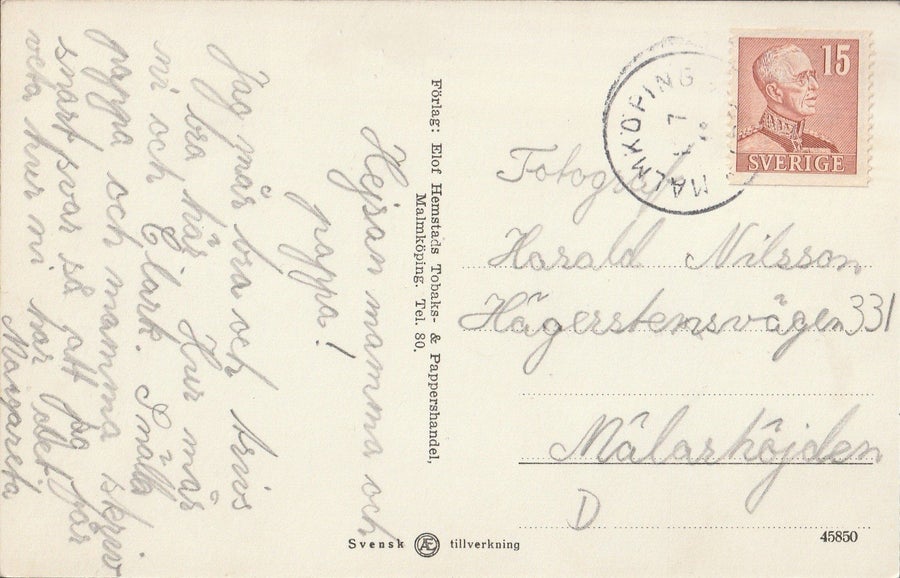 Hejsan mamma och
pappa!
Jag mår bra och trivs
bra här. Hur mår
ni och Clark. Snälla
pappa och mamma skriv
snart svar så att jag får
veta hur ni har det.
Margareta
Förlag: Elof Hemstads Tobaks- & Pappershandel,
Malmköping. Tel. 80.
MALMKÖPING
7
15
SVERIGE
Fotograf
Harald Nilsson
Hägerstensvägen 331
Mälarhöjden
D
Svensk Æ tillverkning
45850